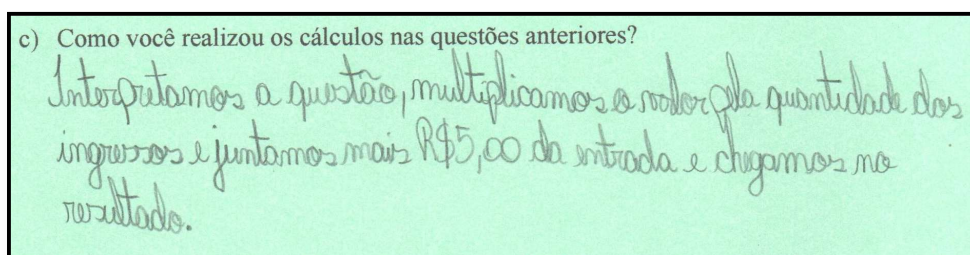 c) Como você realizou os cálculos nas questões anteriores?
Interpretamos a questão, multiplicamos o valor pela quantidade dos
ingressos e juntamos mais R$5,00 da entrada e chegamos no
resultado.